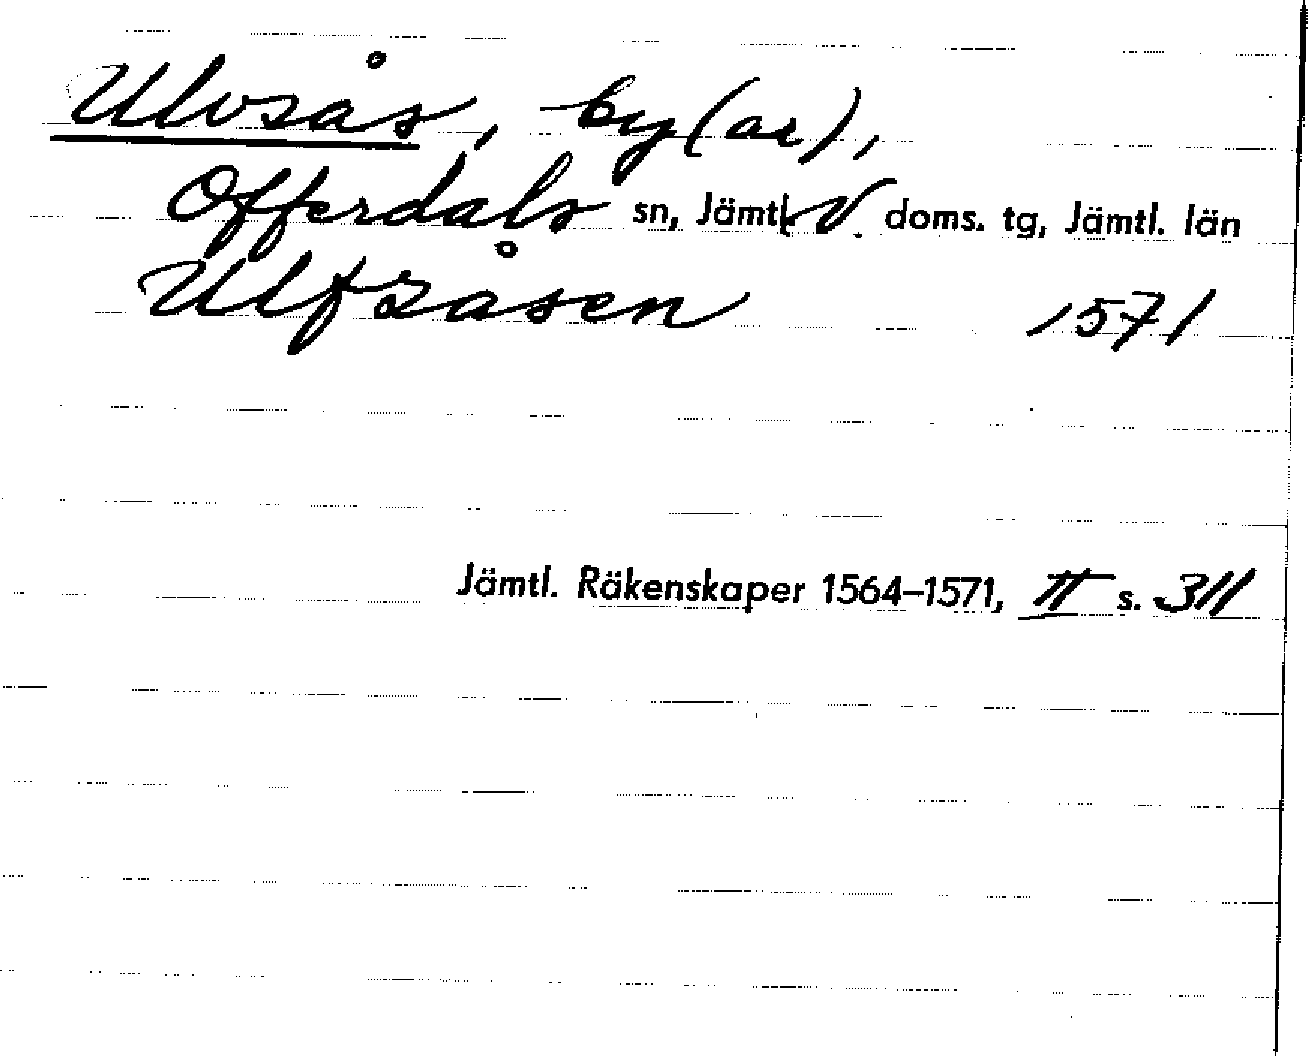 Ulvsås, by(ar),
Offerdals sn, Jämtl. V. doms. tg, Jämtl. län
Ulfsåsen 1571
Jämtl. Räkenskaper 1564–1571, II s. 311